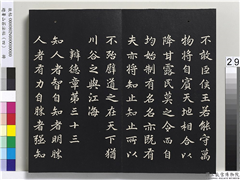 不敢臣侯王若能守萬
物將自賓天地相合以
降甘露民莫之令而自
均始制有名名亦既有
夫亦將知止知止所以
不殆譬道之在天下猶
川谷之與江海
辯德章第三十三
知人者智自知者明勝
人者有力自勝者強知
29